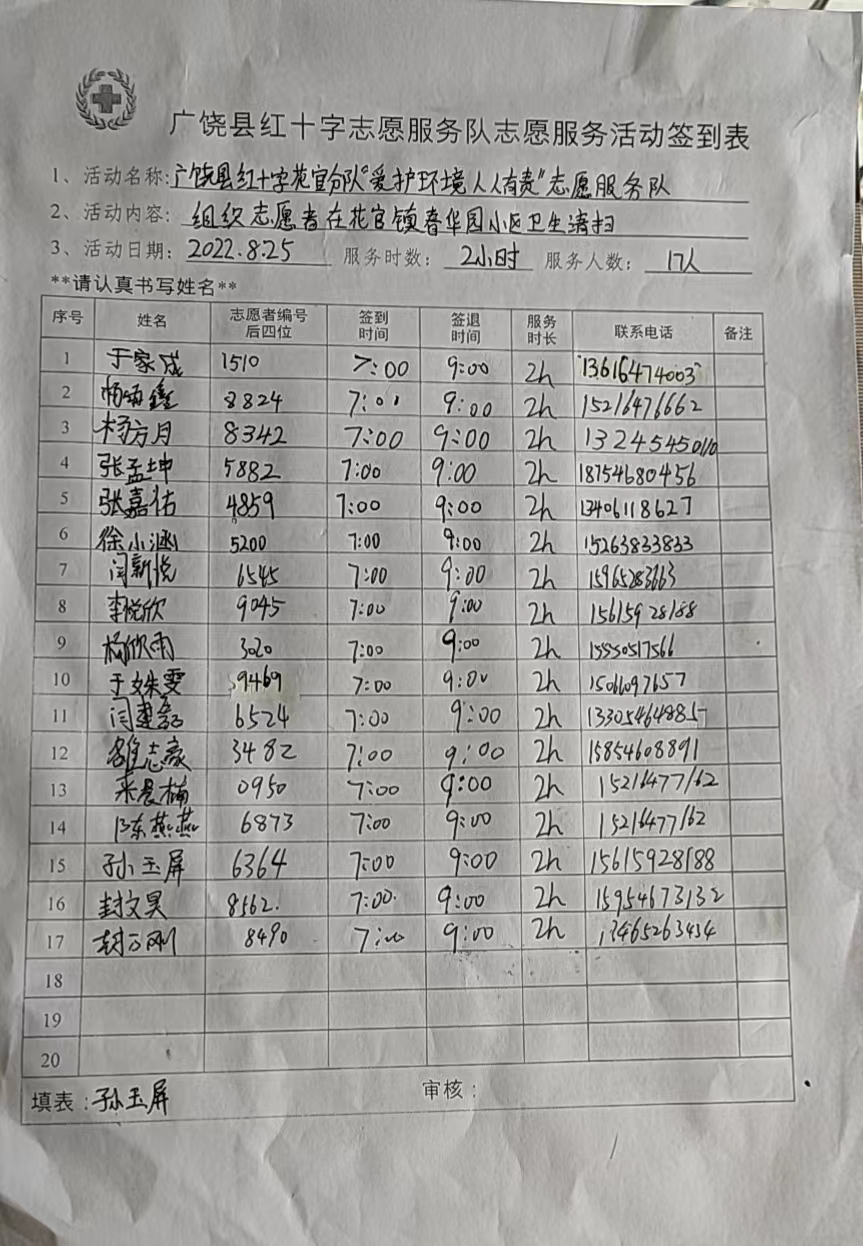 广饶县红十字志愿服务队志愿服务活动签到表
1、活动名称:广饶县红十字花官分队"爱护环境人人有责"志愿服务队
2、活动内容: 组织志愿者在花官镇春华园小区卫生清扫
3、活动日期: 2022.8.25 服务时数: 2小时 服务人数: 17人
**请认真书写姓名**
序号 姓名 志愿者编号后四位 签到时间 签退时间 服务时长 联系电话 备注
1 于家成 1510 7:00 9:00 2h 13616474003
2 8824 7:01 9:00 2h 15216476662
3 杨方月 8342 7:00 9:00 2h 13245450110
4 张孟坤 5882 7:00 9:00 2h 18754680456
5 张嘉佑 4859 7:00 9:00 2h 13406118627
6 徐小涵 5200 7:00 9:00 2h 15263833833
7 闫新悦 6545 7:00 9:00 2h 15965283663
8 李悦欣 9045 7:00 9:00 2h 15615928188
9 杨欣雨 3020 7:00 9:00 2h
10 于姝雯 9469 7:00 9:00 2h 15066097657
11 6524 7:00 9:00 2h 13305464885
12 3482 7:00 9:00 2h 15854608891
13 0950 7:00 9:00 2h 15216477162
14 陈燕燕 6873 7:00 9:00 2h 15216477162
15 孙玉屏 6364 7:00 9:00 2h 15615928188
16 封文昊 8562. 7:00. 9:00 2h 15954673132
17 封方刚 8490 7:00 9:00 2h 13465263434
18
19
20
填表:孙玉屏 审核: